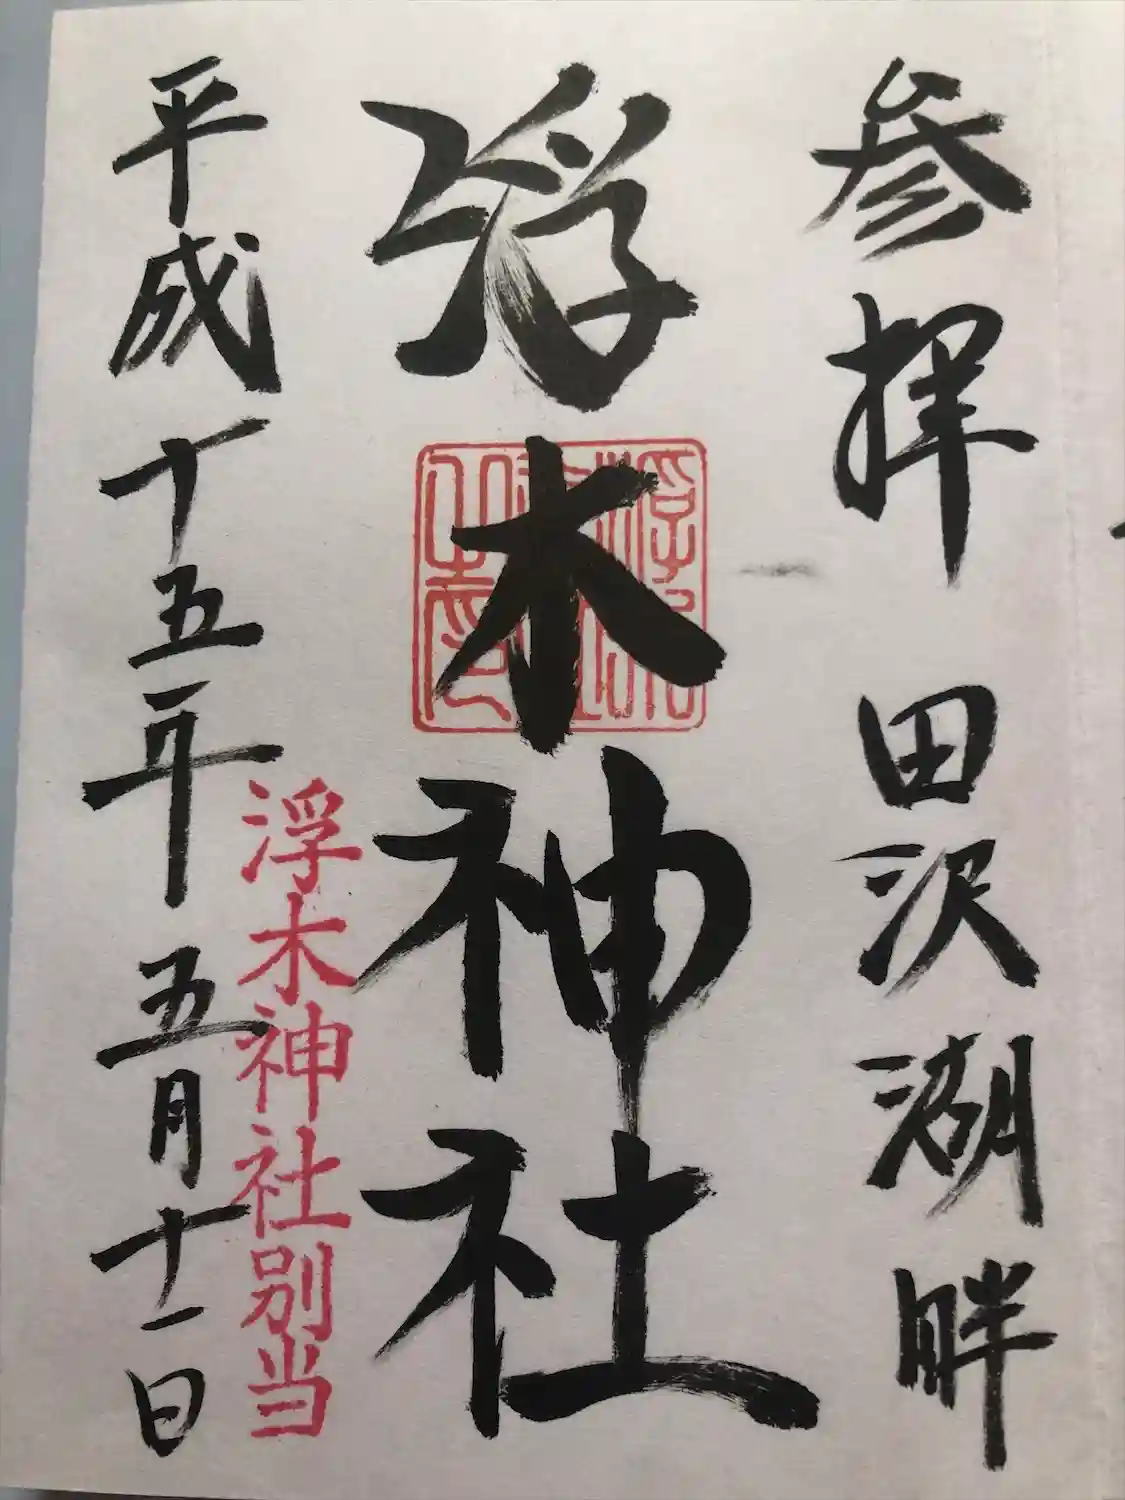 参拝 田沢湖畔
浮木神社
浮木神社別当
平成十五年五月十一日